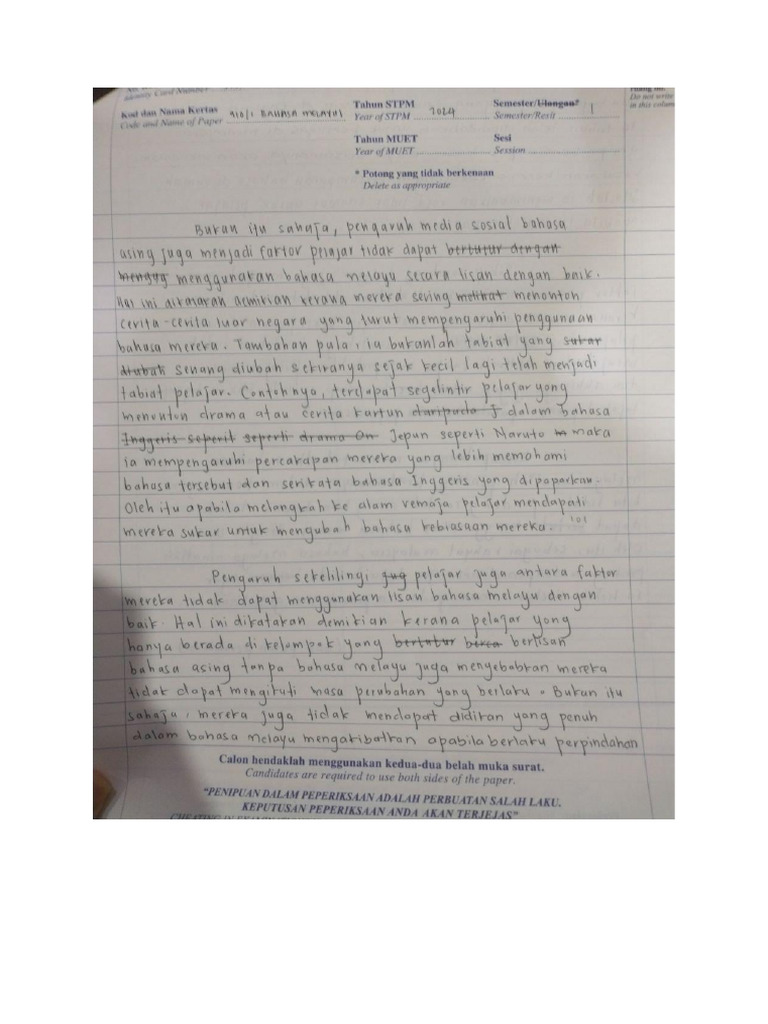 Identity Card Number
Kod dan Nama Kertas 910/1 BAHASA MELAYU
Code and Name of Paper
Tahun STPM
Year of STPM 2024
Semester/Ulangan*
Semester/Resit 1
Do not write
in this column
Tahun MUET
Year of MUET
Sesi
Session
* Potong yang tidak berkenaan
Delete as appropriate
Bukan itu sahaja, pengaruh media sosial bahasa
asing juga menjadi faktor pelajar tidak dapat bertutur dengan
menggunakan bahasa melayu secara lisan dengan baik.
Hal ini dikatakan demikian kerana mereka sering melihat menonton
cerita-cerita luar negara yang turut mempengaruhi penggunaan
bahasa mereka. Tambahan pula, ia bukanlah tabiat yang sukar
diubah senang diubah sekiranya sejak kecil lagi telah menjadi
tabiat pelajar. Contohnya, terdapat segelintir pelajar yang
menonton drama atau cerita kartun daripada J dalam bahasa
Inggeris seperit seperti drama On Jepun seperti Naruto m maka
ia mempengaruhi percakapan mereka yang lebih memahami
bahasa tersebut dan serikata bahasa Inggeris yang dipaparkan.
Oleh itu apabila melangkah ke alam remaja pelajar mendapati
mereka sukar untuk mengubah bahasa kebiasaan mereka. 101
Pengaruh sekelilingi jug pelajar juga antara faktor
mereka tidak dapat menggunakan lisan bahasa melayu dengan
baik. Hal ini dikatakan demikian kerana pelajar yang
hanya berada di kelompok yang bertutur berca berlisan
bahasa asing tanpa bahasa melayu juga menyebabkan mereka
tidak dapat mengikuti masa perubahan yang berlaku. Bukan itu
sahaja, mereka juga tidak mendapat didikan yang penuh
dalam bahasa melayu mengakibatkan apabila berlaku perpindahan
Calon hendaklah menggunakan kedua-dua belah muka surat.
Candidates are required to use both sides of the paper.
"PENIPUAN DALAM PEPERIKSAAN ADALAH PERBUATAN SALAH LAKU.
KEPUTUSAN PEPERIKSAAN ANDA AKAN TERJEJAS"